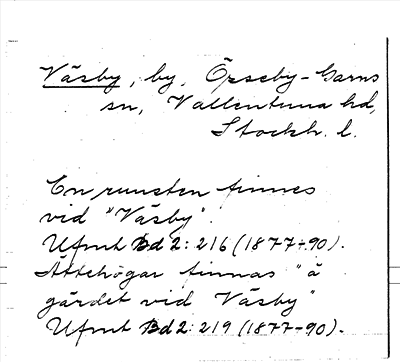 Väsby, by, Össeby-Garns
sn, Vallentuna hd,
Stockh. l.
En runsten finnes
vid "Väsby".
Ufmt Bd 2: 216 (1877-90).
Ättehögar finnas "å
gärdet vid Väsby"
Ufmt Bd 2: 219 (1877-90).